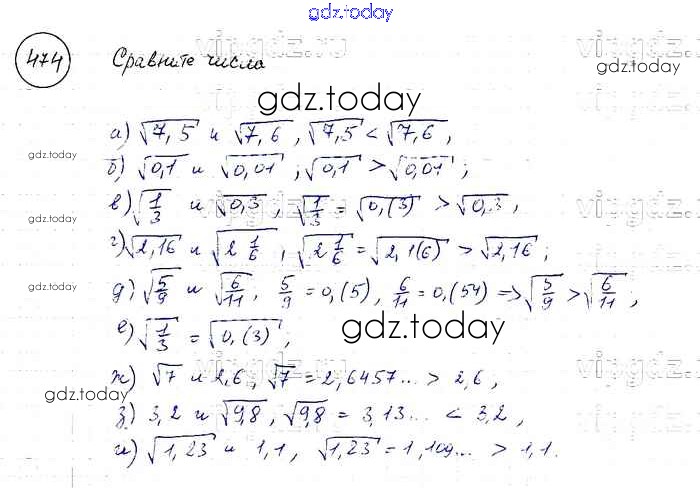 gdz.today
474 Сравните числа
gdz.today
а) √7,5 и √7,6, √7,5 < √7,6,
б) √0,1 и √0,01; √0,1 > √0,01;
gdz.today
в) √1/3 и √0,3, √1/3 = √0,(3) > √0,3,
г) √2,16 и √2 1/6, √2 1/6 = √2,1(6) > √2,16;
д) √5/9 и √6/11, 5/9 = 0,(5), 6/11 = 0,(54) => √5/9 > √6/11;
е) √1/3 = √0,(3);
gdz.today
ж) √7 и 2,6, √7 = 2,6457... > 2,6,
з) 3,2 и √9,8, √9,8 = 3,13... < 3,2,
и) √1,23 и 1,1, √1,23 = 1,109... > 1,1.